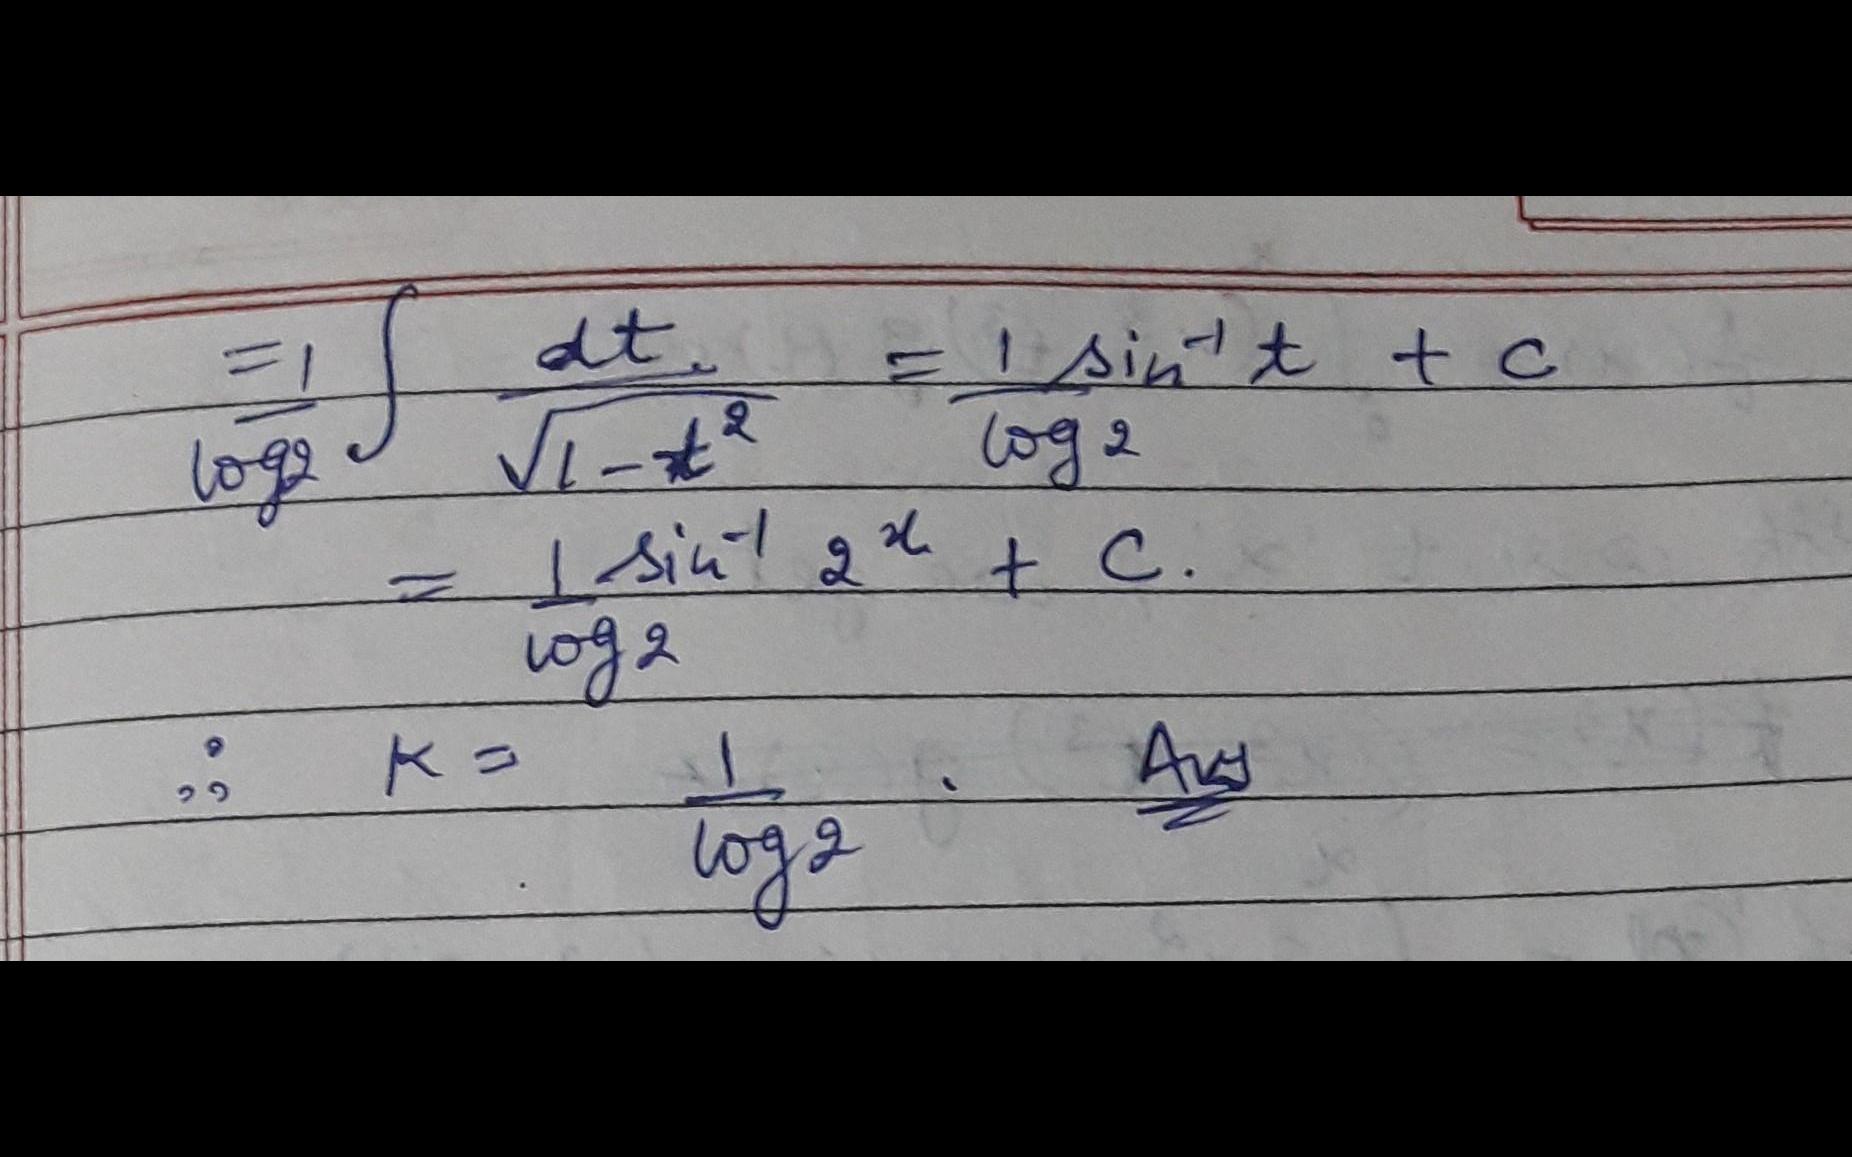 = 1/log2 ∫ dt/√1-t² = 1/log 2 sin⁻¹ t + C
= 1/log 2 sin⁻¹ 2ˣ + C.
∴ K = 1/log 2 . Ans